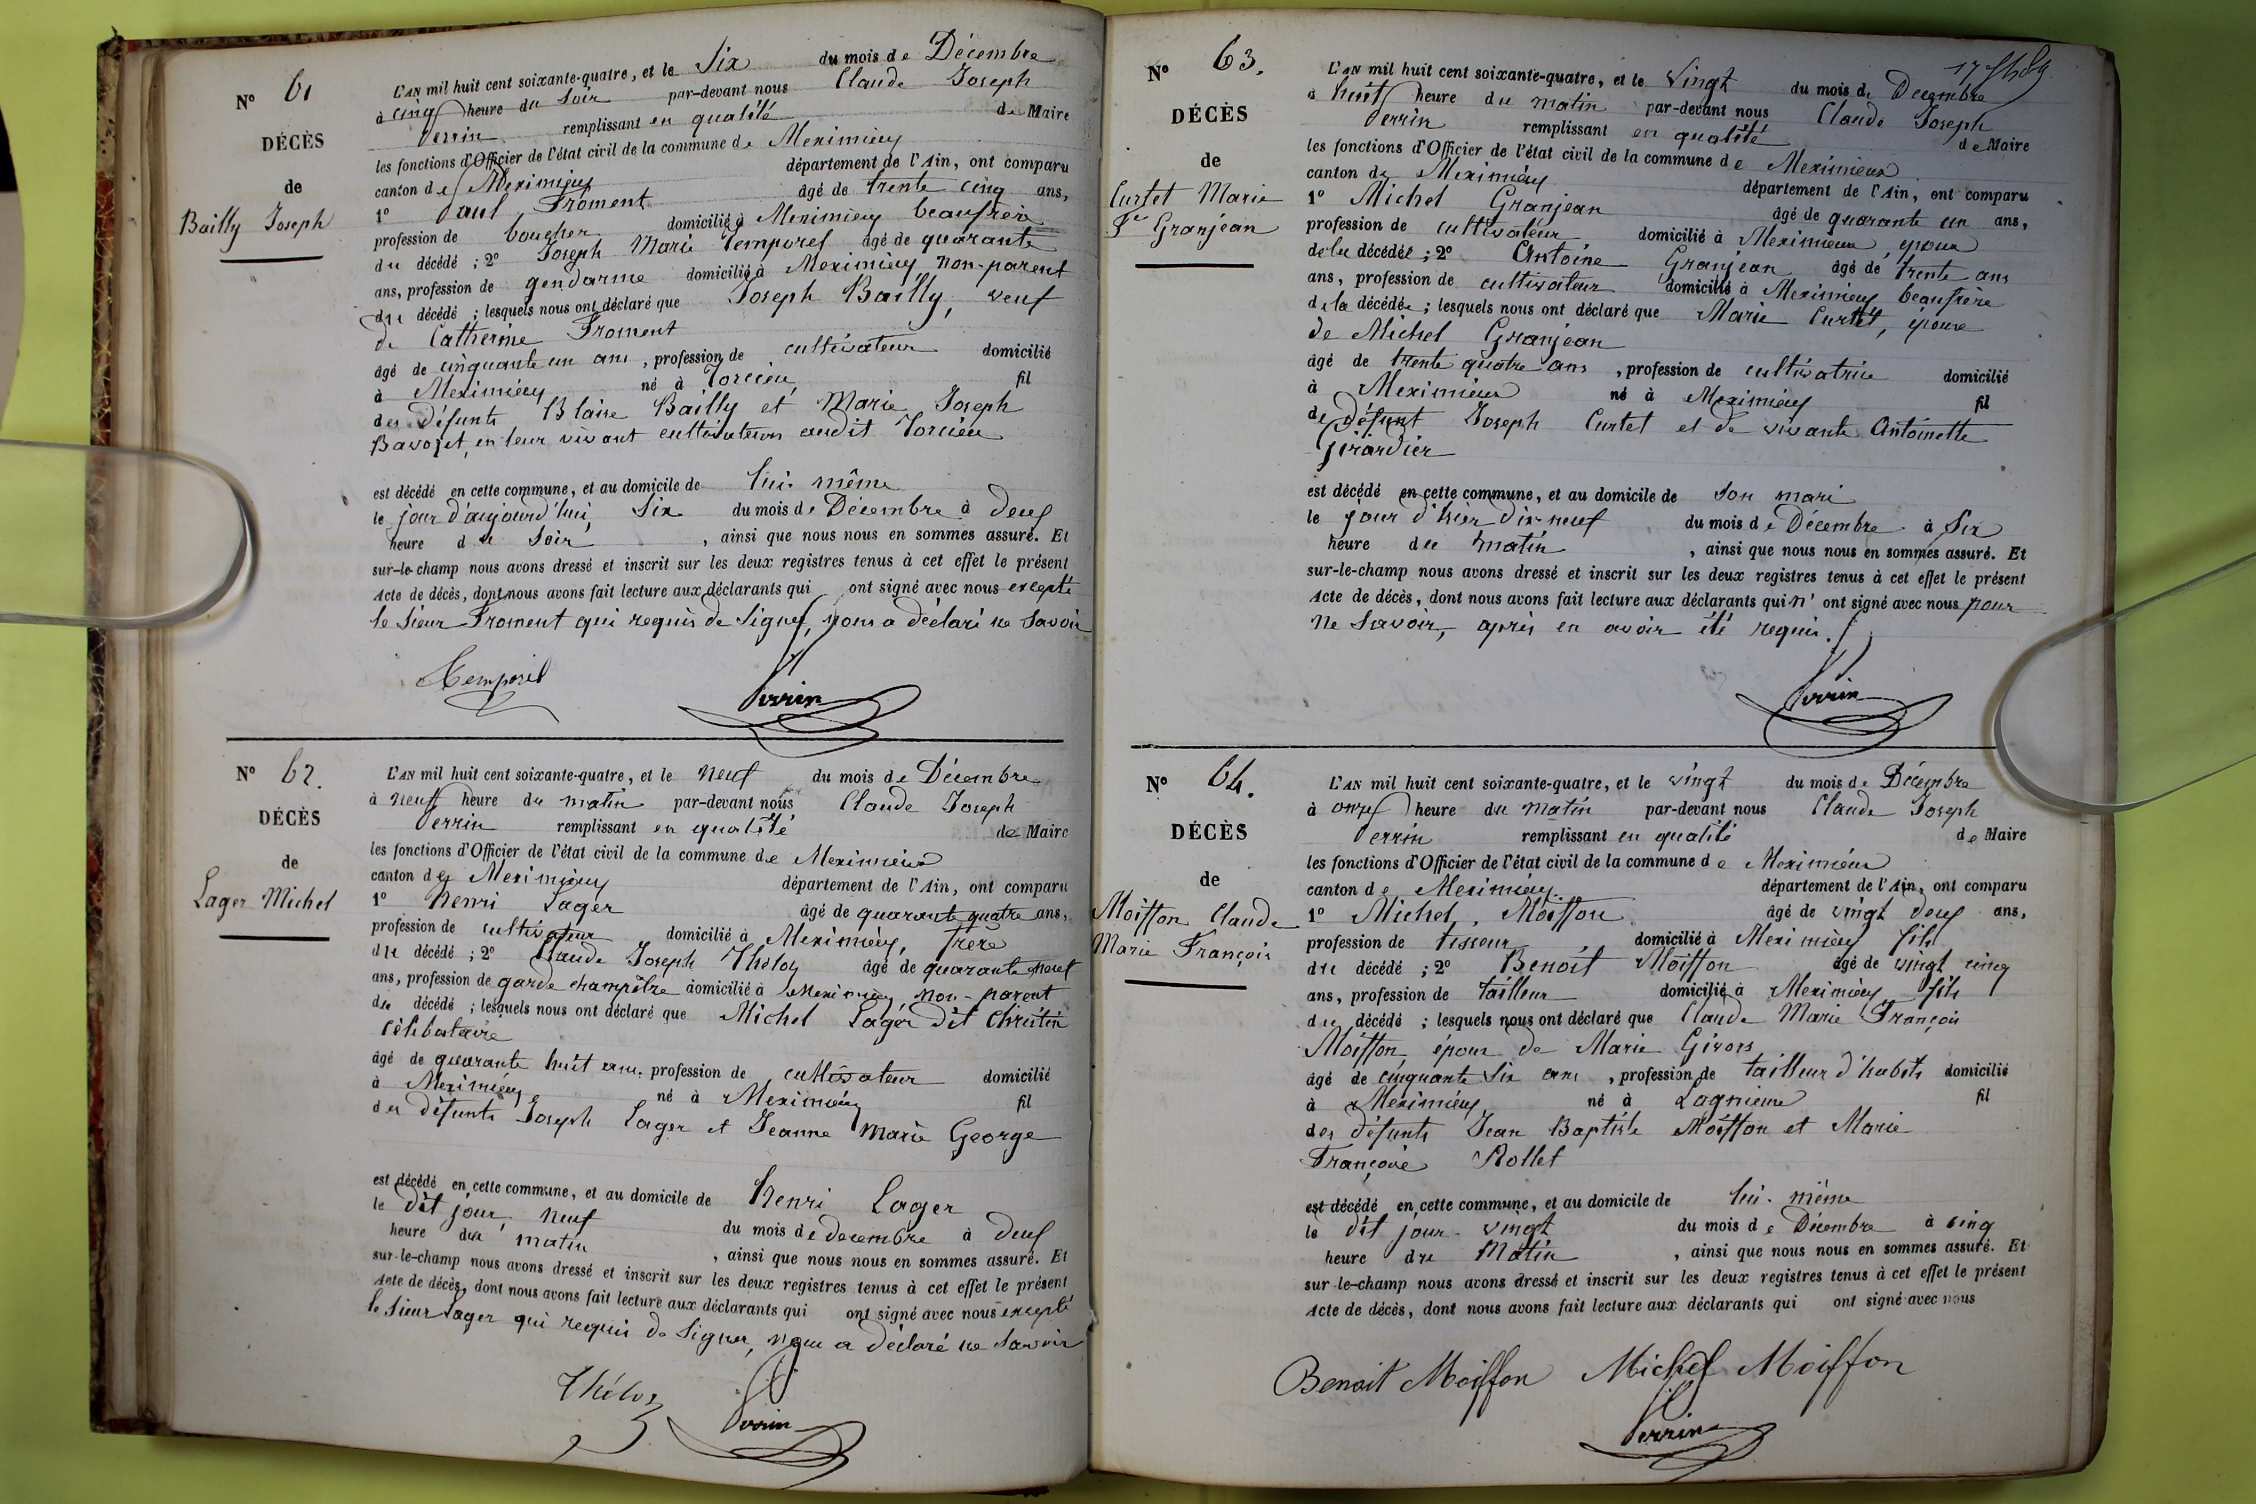 N° 61
DÉCÈS
de
Bailly Joseph
L'AN mil huit cent soixante-quatre, et le Six du mois de Décembre
à cinq heure du Soir par-devant nous Claude Joseph
Perrin remplissant en qualité de Maire
les fonctions d'Officier de l'état civil de la commune de Meximieux
canton de Meximieux département de l'Ain, ont comparu
1° Paul Froment âgé de trente cinq ans,
profession de boucher domicilié à Meximieux beaufrère
du décédé ; 2° Joseph Marie Temporel âgé de quarante
ans, profession de gendarme domicilié à Meximieux non-parent
du décédé ; lesquels nous ont déclaré que Joseph Bailly, veuf
de Catherine Froment
âgé de cinquante un ans, profession de cultivateur domicilié
à Meximieux né à Torcieu fil
des défunts Blaise Bailly et Marie Joseph
Bavozet, en leur vivant cultivateurs audit Torcieu
est décédé en cette commune, et au domicile de lui-même
le jour d'aujourd'hui, Six du mois de Décembre à deux
heure du Soir, ainsi que nous nous en sommes assuré. Et
sur-le-champ nous avons dressé et inscrit sur les deux registres tenus à cet effet le présent
Acte de décès, dont nous avons fait lecture aux déclarants qui ont signé avec nous excepté
le Sieur Froment qui requis de Signer, nous a déclaré ne Savoir
Temporel Perrin
N° 62.
DÉCÈS
de
Lager Michel
L'AN mil huit cent soixante-quatre, et le neuf du mois de Décembre
à neuf heure du matin par-devant nous Claude Joseph
Perrin remplissant en qualité de Maire
les fonctions d'Officier de l'état civil de la commune de Meximieux
canton de Meximieux département de l'Ain, ont comparu
1° Henri Lager âgé de quarante quatre ans,
profession de cultivateur domicilié à Meximieux, frère
du décédé ; 2° Claude Joseph Théloz âgé de quarante neuf
ans, profession de garde champêtre domicilié à Meximieux, non-parent
du décédé ; lesquels nous ont déclaré que Michel Lager dit Christin
célibataire
âgé de quarante huit ans, profession de cultivateur domicilié
à Meximieux né à Meximieux fil
des défunts Joseph Lager et Jeanne Marie George
est décédé en cette commune, et au domicile de Henri Lager
le dit jour, neuf du mois de decembre à deux
heure du matin, ainsi que nous nous en sommes assuré. Et
sur-le-champ nous avons dressé et inscrit sur les deux registres tenus à cet effet le présent
Acte de décès, dont nous avons fait lecture aux déclarants qui ont signé avec nous excepté
le Sieur Lager qui requis de Signer, nous a déclaré ne Savoir
Théloz Perrin
N° 63.
DÉCÈS
de
Curtet Marie
Fe Granjean
L'AN mil huit cent soixante-quatre, et le Vingt du mois de Decembre
à huit heure du matin par-devant nous Claude Joseph
Perrin remplissant en qualité de Maire
les fonctions d'Officier de l'état civil de la commune de Meximieux
canton de Meximieux département de l'Ain, ont comparu
1° Michel Granjean âgé de quarante un ans,
profession de cultivateur domicilié à Meximieux, époux
de la décédée ; 2° Antoine Granjean âgé de trente ans
ans, profession de cultivateur domicilié à Meximieux beaufrère
de la décédée ; lesquels nous ont déclaré que Marie Curtet, épouse
de Michel Granjean
âgé de trente quatre ans, profession de cultivatrice domicilié
à Meximieux né à Meximieux fil
de défunt Joseph Curtet et de vivante Antoinette
Girardier
est décédé en cette commune, et au domicile de son mari
le jour d'hier dix-neuf du mois de Décembre à Six
heure du matin, ainsi que nous nous en sommes assuré. Et
sur-le-champ nous avons dressé et inscrit sur les deux registres tenus à cet effet le présent
Acte de décès, dont nous avons fait lecture aux déclarants qui n'ont signé avec nous pour
ne Savoir, après en avoir été requis.
Perrin
N° 64.
DÉCÈS
de
Moiffon Claude
Marie François
L'AN mil huit cent soixante-quatre, et le vingt du mois de Décembre
à onze heure du matin par-devant nous Claude Joseph
Perrin remplissant en qualité de Maire
les fonctions d'Officier de l'état civil de la commune de Meximieux
canton de Meximieux département de l'Ain, ont comparu
1° Michel Moiffon âgé de vingt deux ans,
profession de tisseur domicilié à Meximieux fils
du décédé ; 2° Benoit Moiffon âgé de vingt cinq
ans, profession de tailleur domicilié à Meximieux fils
du décédé ; lesquels nous ont déclaré que Claude Marie François
Moiffon, époux de Marie Givors
âgé de cinquante Six ans, profession de tailleur d'habits domicilié
à Meximieux né à Lagnieu fil
des défunts Jean Baptiste Moiffon et Marie
Françoise Rollet
est décédé en cette commune, et au domicile de lui-même
le dit jour vingt du mois de Décembre à cinq
heure du Matin, ainsi que nous nous en sommes assuré. Et
sur-le-champ nous avons dressé et inscrit sur les deux registres tenus à cet effet le présent
Acte de décès, dont nous avons fait lecture aux déclarants qui ont signé avec nous
Benoit Moiffon Michel Moiffon
Perrin